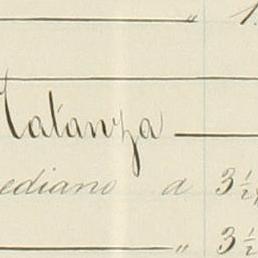 " 1
Matanza
ediano a 3 1/2
" 3 1/2